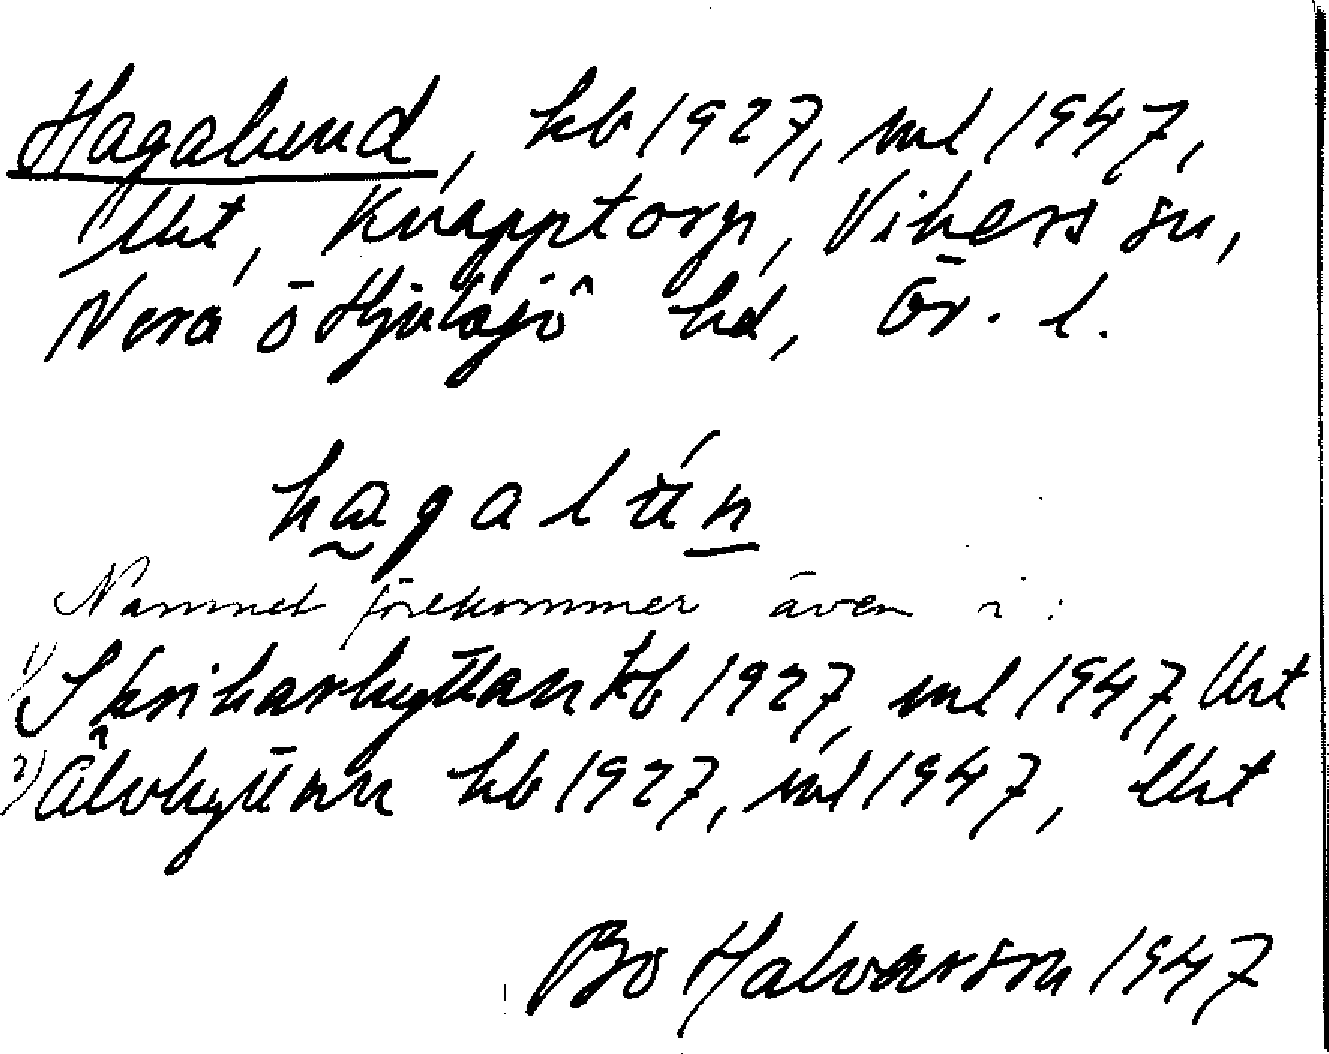 Hagalund, kb 1927, ml 1947,
Urt, Knapptorp, Vikers sn,
Nora o Hjulsjö hd, Ör. l.
hagalún
Namnet förekommer även i:
1) Skrikarhyttan kb 1927, ml 1947, Urt
2) Älvhyttan kb 1927, ml 1947, Urt
Bo Halvarson 1947